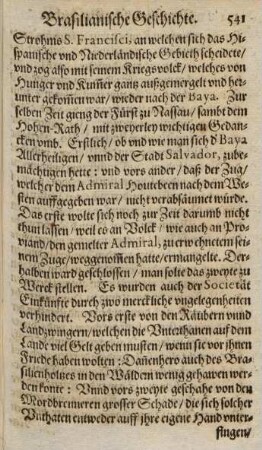 Brasilianische Geschichte. 541
Strohms S. Francisci, an welchen sich das Hi-
spanische und Niderländische Gebieth scheidete/
und zog also mit seinem Kriegsvolck/ welches von
Hunger und Kummer gantz außgemergelt und her-
unter gekommen war/ wieder nach der Baya. Zur
selben Zeit gieng der Fürst zu Nassau/ sambt dem
Hohen-Rath/ mit zweyerley wichtigen Gedan-
cken umb. Erstlich/ ob und wie man sich d' Baya
Allerheiligen/ unnd der Stadt Salvador, zube-
mächtigen hette: und vors ander/ daß der Zug/
welcher dem Admiral Houtebeen nach dem We-
sten auffgegeben war/ nicht verabsäumet würde.
Das erste wolte sich noch zur Zeit darumb nicht
thun lassen/ weil es an Volck/ wie auch an Pro-
viand/ den gemelter Admiral, zu erwehnetem sei-
nem Zuge/ weggenom̃en hatte/ ermangelte. Der-
halben ward geschlossen/ man solte das zweyte zu
Werck stellen. Es wurden auch der Societät
Einkünfte durch zwo merckliche ungelegenheiten
verhindert. Vors erste von den Räubern unnd
Landzwingern/ welchen die Unterthanen auf dem
Lande viel Gelt geben musten/ wenn sie vor ihnen
Friede haben wolten: Dañenhero auch des Bra-
silienholtzes in den Wäldern wenig gehawen wer-
den konte: Unnd vors zweyte geschahe von den
Mordbrennern grosser Schade/ die sich solcher
Unthaten entweder auff ihre eigene Hand unter-
fingen/